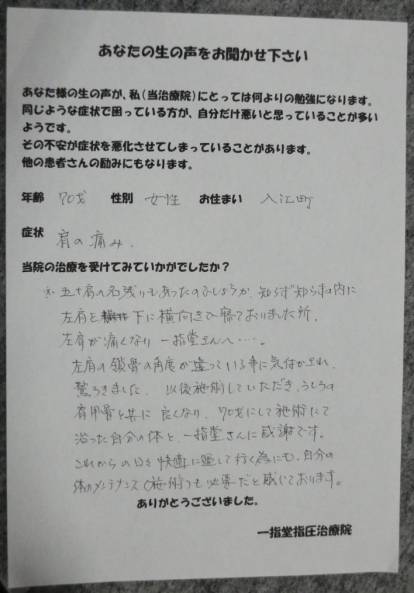 あなたの生の声をお聞かせ下さい
あなた様の生の声が、私(当治療院)にとっては何よりの勉強になります。
同じような症状で困っている方が、自分だけ悪いと思っていることが多い
ようです。
その不安が症状を悪化させてしまっていることがあります。
他の患者さんの励みにもなります。
年齢 70才 性別 女性 お住まい 入江町
症状 肩の痛み.
当院の治療を受けてみていかがでしたか?
五十肩の名残りもあったのでしょうか、知らず知らずの内に
左肩を下に横向きで寝ておりました所、
左肩が痛くなり 一指堂さんへ・・・。
左肩の鎖骨の角度が違っている事に気付かされ、
驚ろきました。以後施術していただき、うしろの
肩甲骨と共に良くなり、70才にして施術にて
治った自分の体と、一指堂さんに感謝です。
これからの日を快適に過して行く為にも、自分の
体のメンテナンス(施術)も必要だと感じております。
ありがとうございました。
一指堂指圧治療院